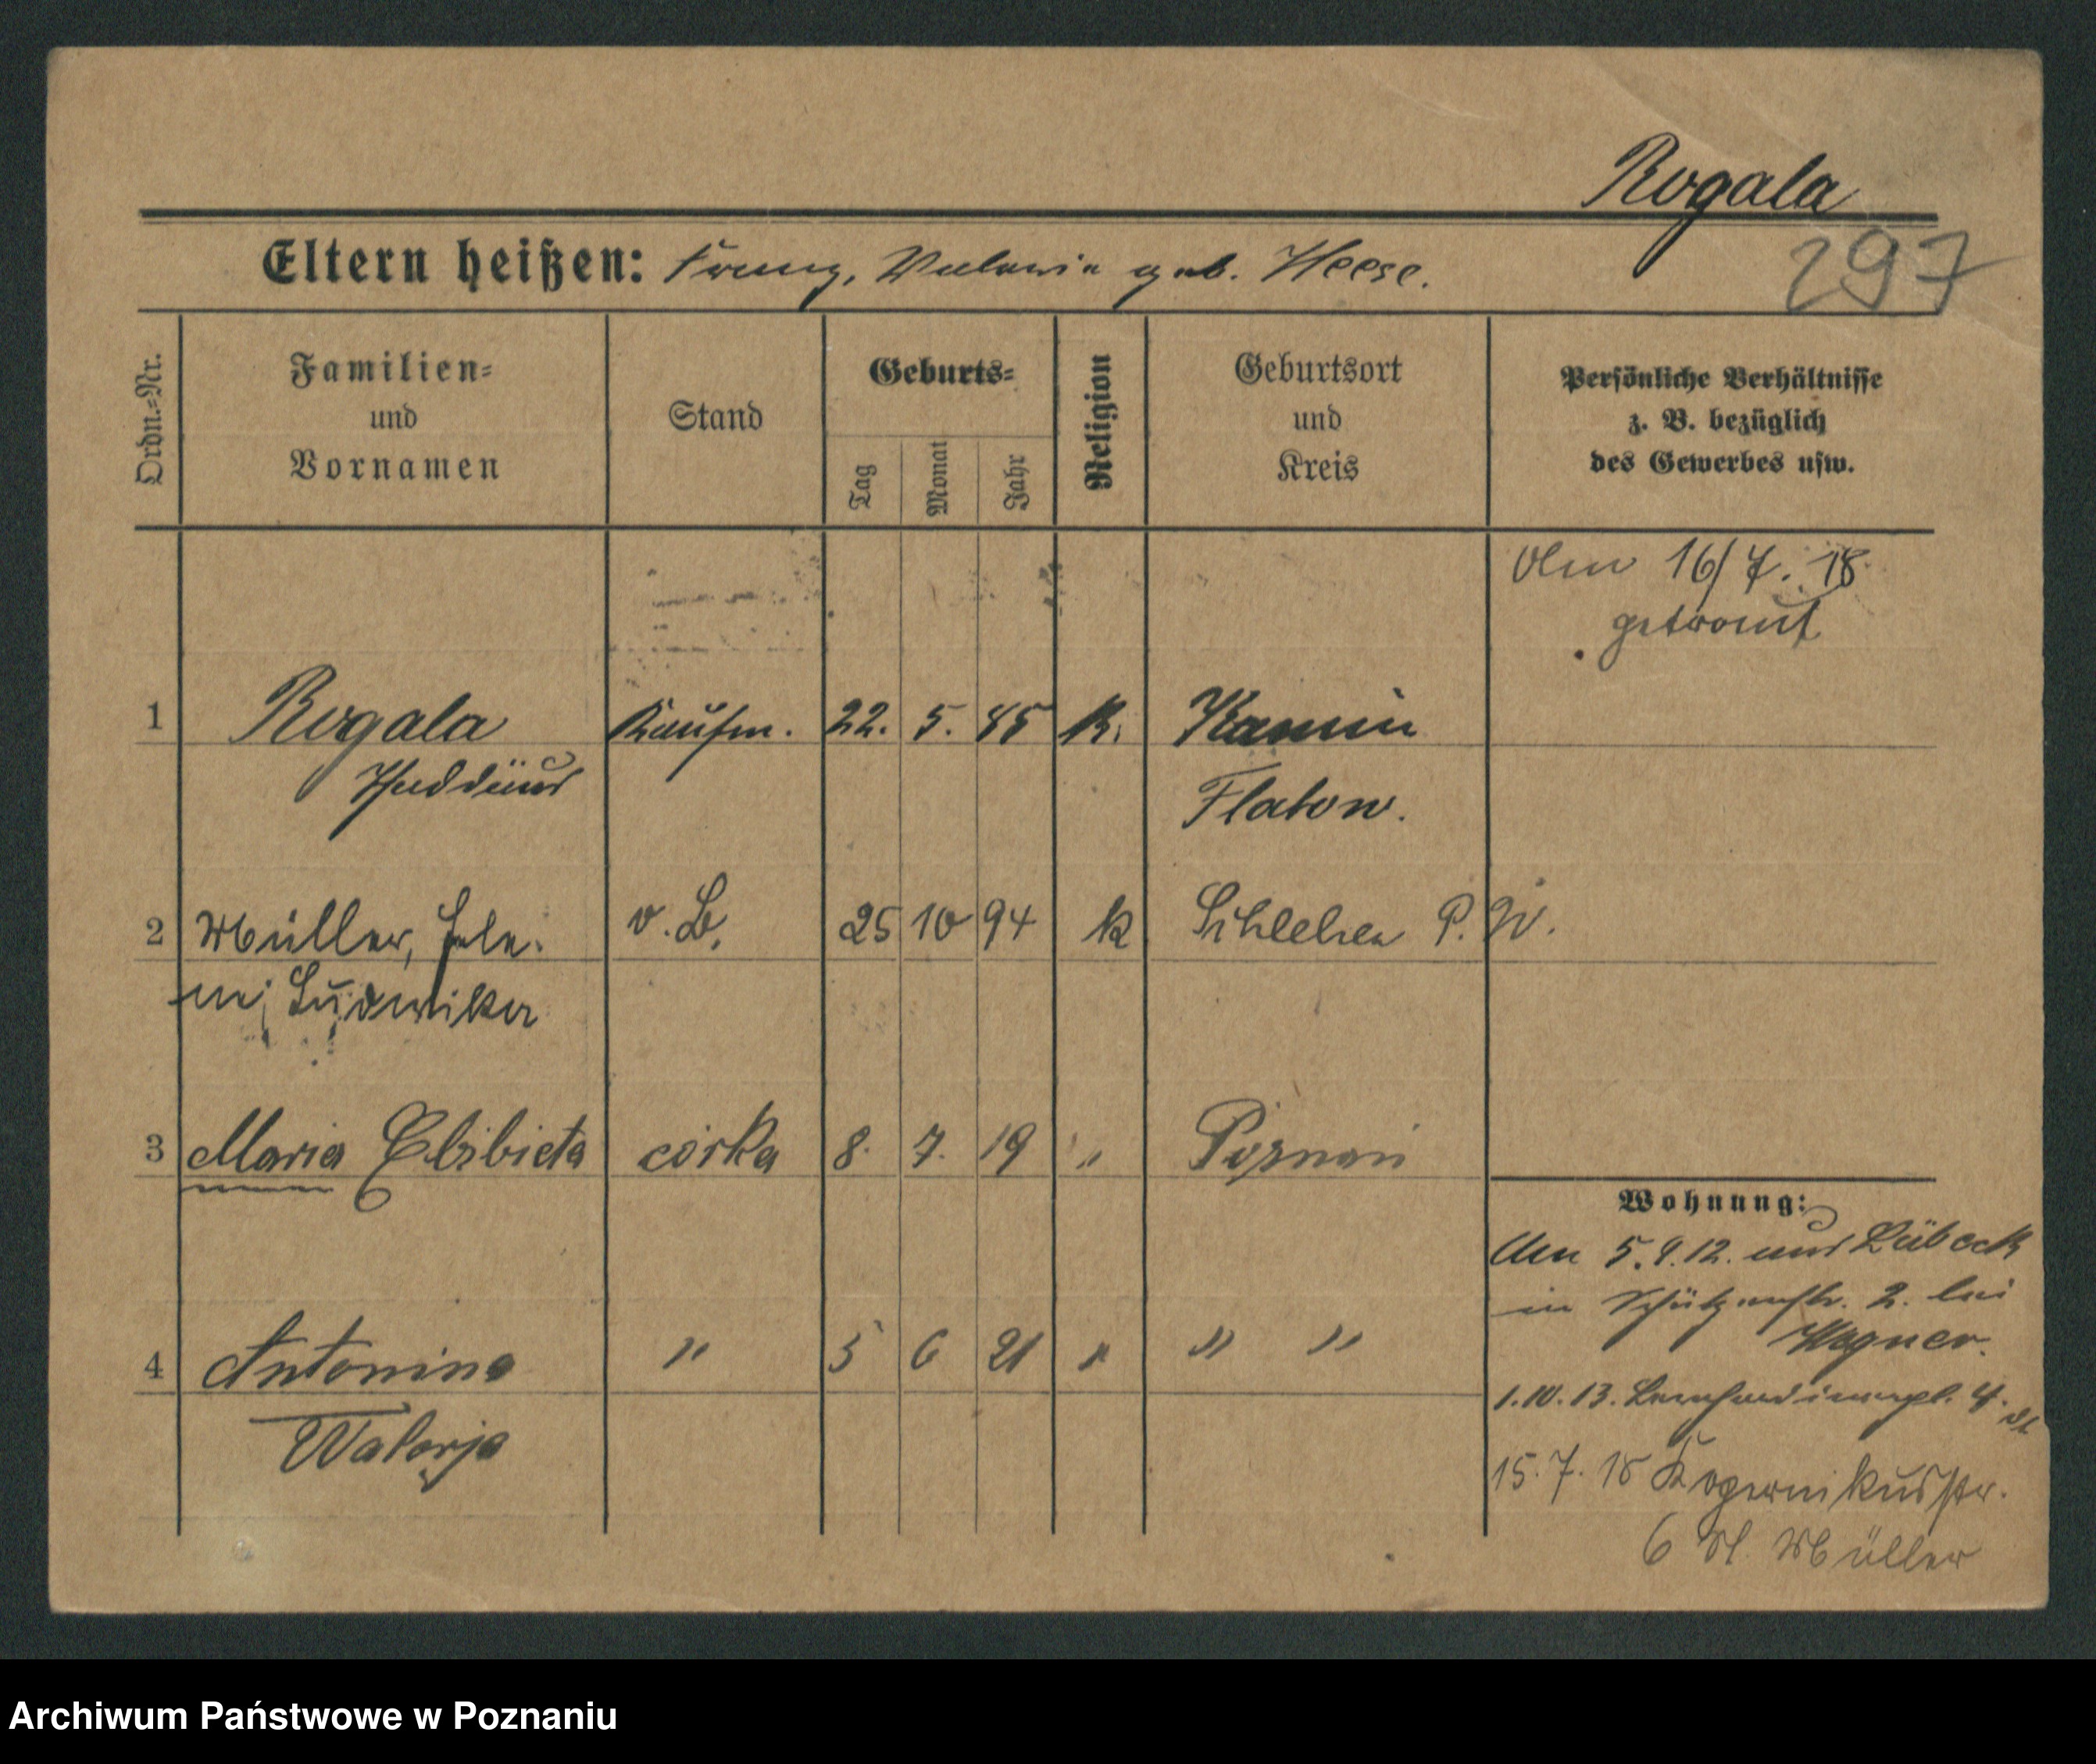 Rogala
297
Eltern heißen: Franz, Valeria geb. Heese.
Ordn.-Nr.
Familien-
und
Vornamen
Stand
Geburts-
Tag
Monat
Jahr
Religion
Geburtsort
und
Kreis
Persönliche Verhältnisse
z. B. bezüglich
des Gewerbes usw.
Am 16/7. 18.
getraut
1 Rogala Kaufm. 22. 5. 85 K. Kamin
Thaddäus Flatow.
2 Müller, Hele- v. B. 25 10 94 k Schlehen P. W.
ne, Ludwika
3 Maria Elżbieta córka 8. 7. 19 " Poznań
4 Antonina " 5 6 21 " " "
Walerja
Wohnung:
Am 5.9.12. aus Lübeck
in Schützenstr. 2. bei
Wagner.
1.10.13. Bernhardinerpl. 4.
15.7.18 Kopernikusstr.
6 Müller
Archiwum Państwowe w Poznaniu